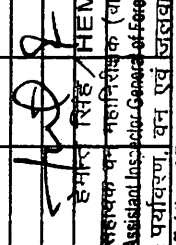 हेमन्त सिंह / HEM
सहायक वन महानिरीक्षक (व
Assistant Inspector General of Fore
पर्यावरण, वन एवं जलवा